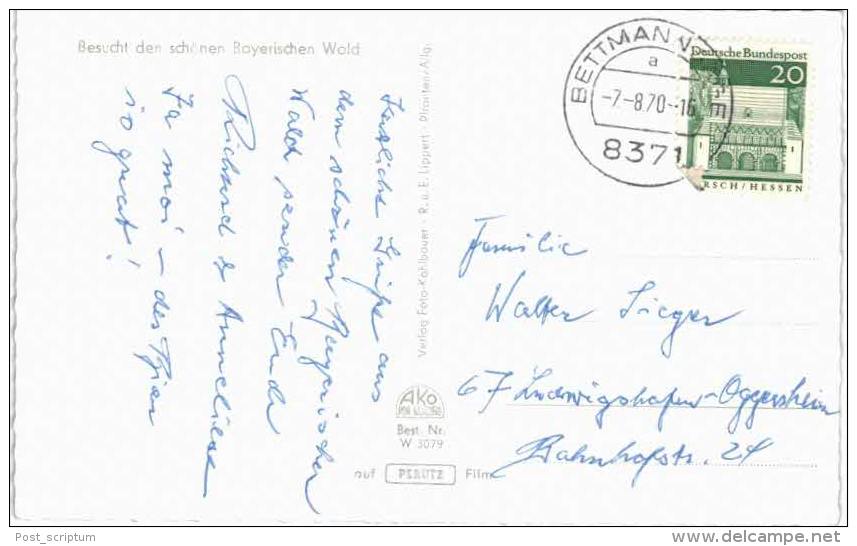 Besucht den schönen Bayerischen Wald
Herzliche Grüße aus
dem schönen Bayerischen
Wald sendet Euch
Richard & Anneliese
Ja moi – des Bier
is guat!
Verlag Foto-Kohlbauer · R. u. E. Lippert · Pfronten/Allg.
AKO
Best. Nr.
W 3079
auf PERUTZ Film
BETTMAN
a
-7.-8.70-16
8371
Deutsche Bundespost
20
RSCH/HESSEN
Familie
Walter Sieger
67 Ludwigshafen-Oggersheim
Bahnhofstr. 24
Post_scriptum
delcampe.net